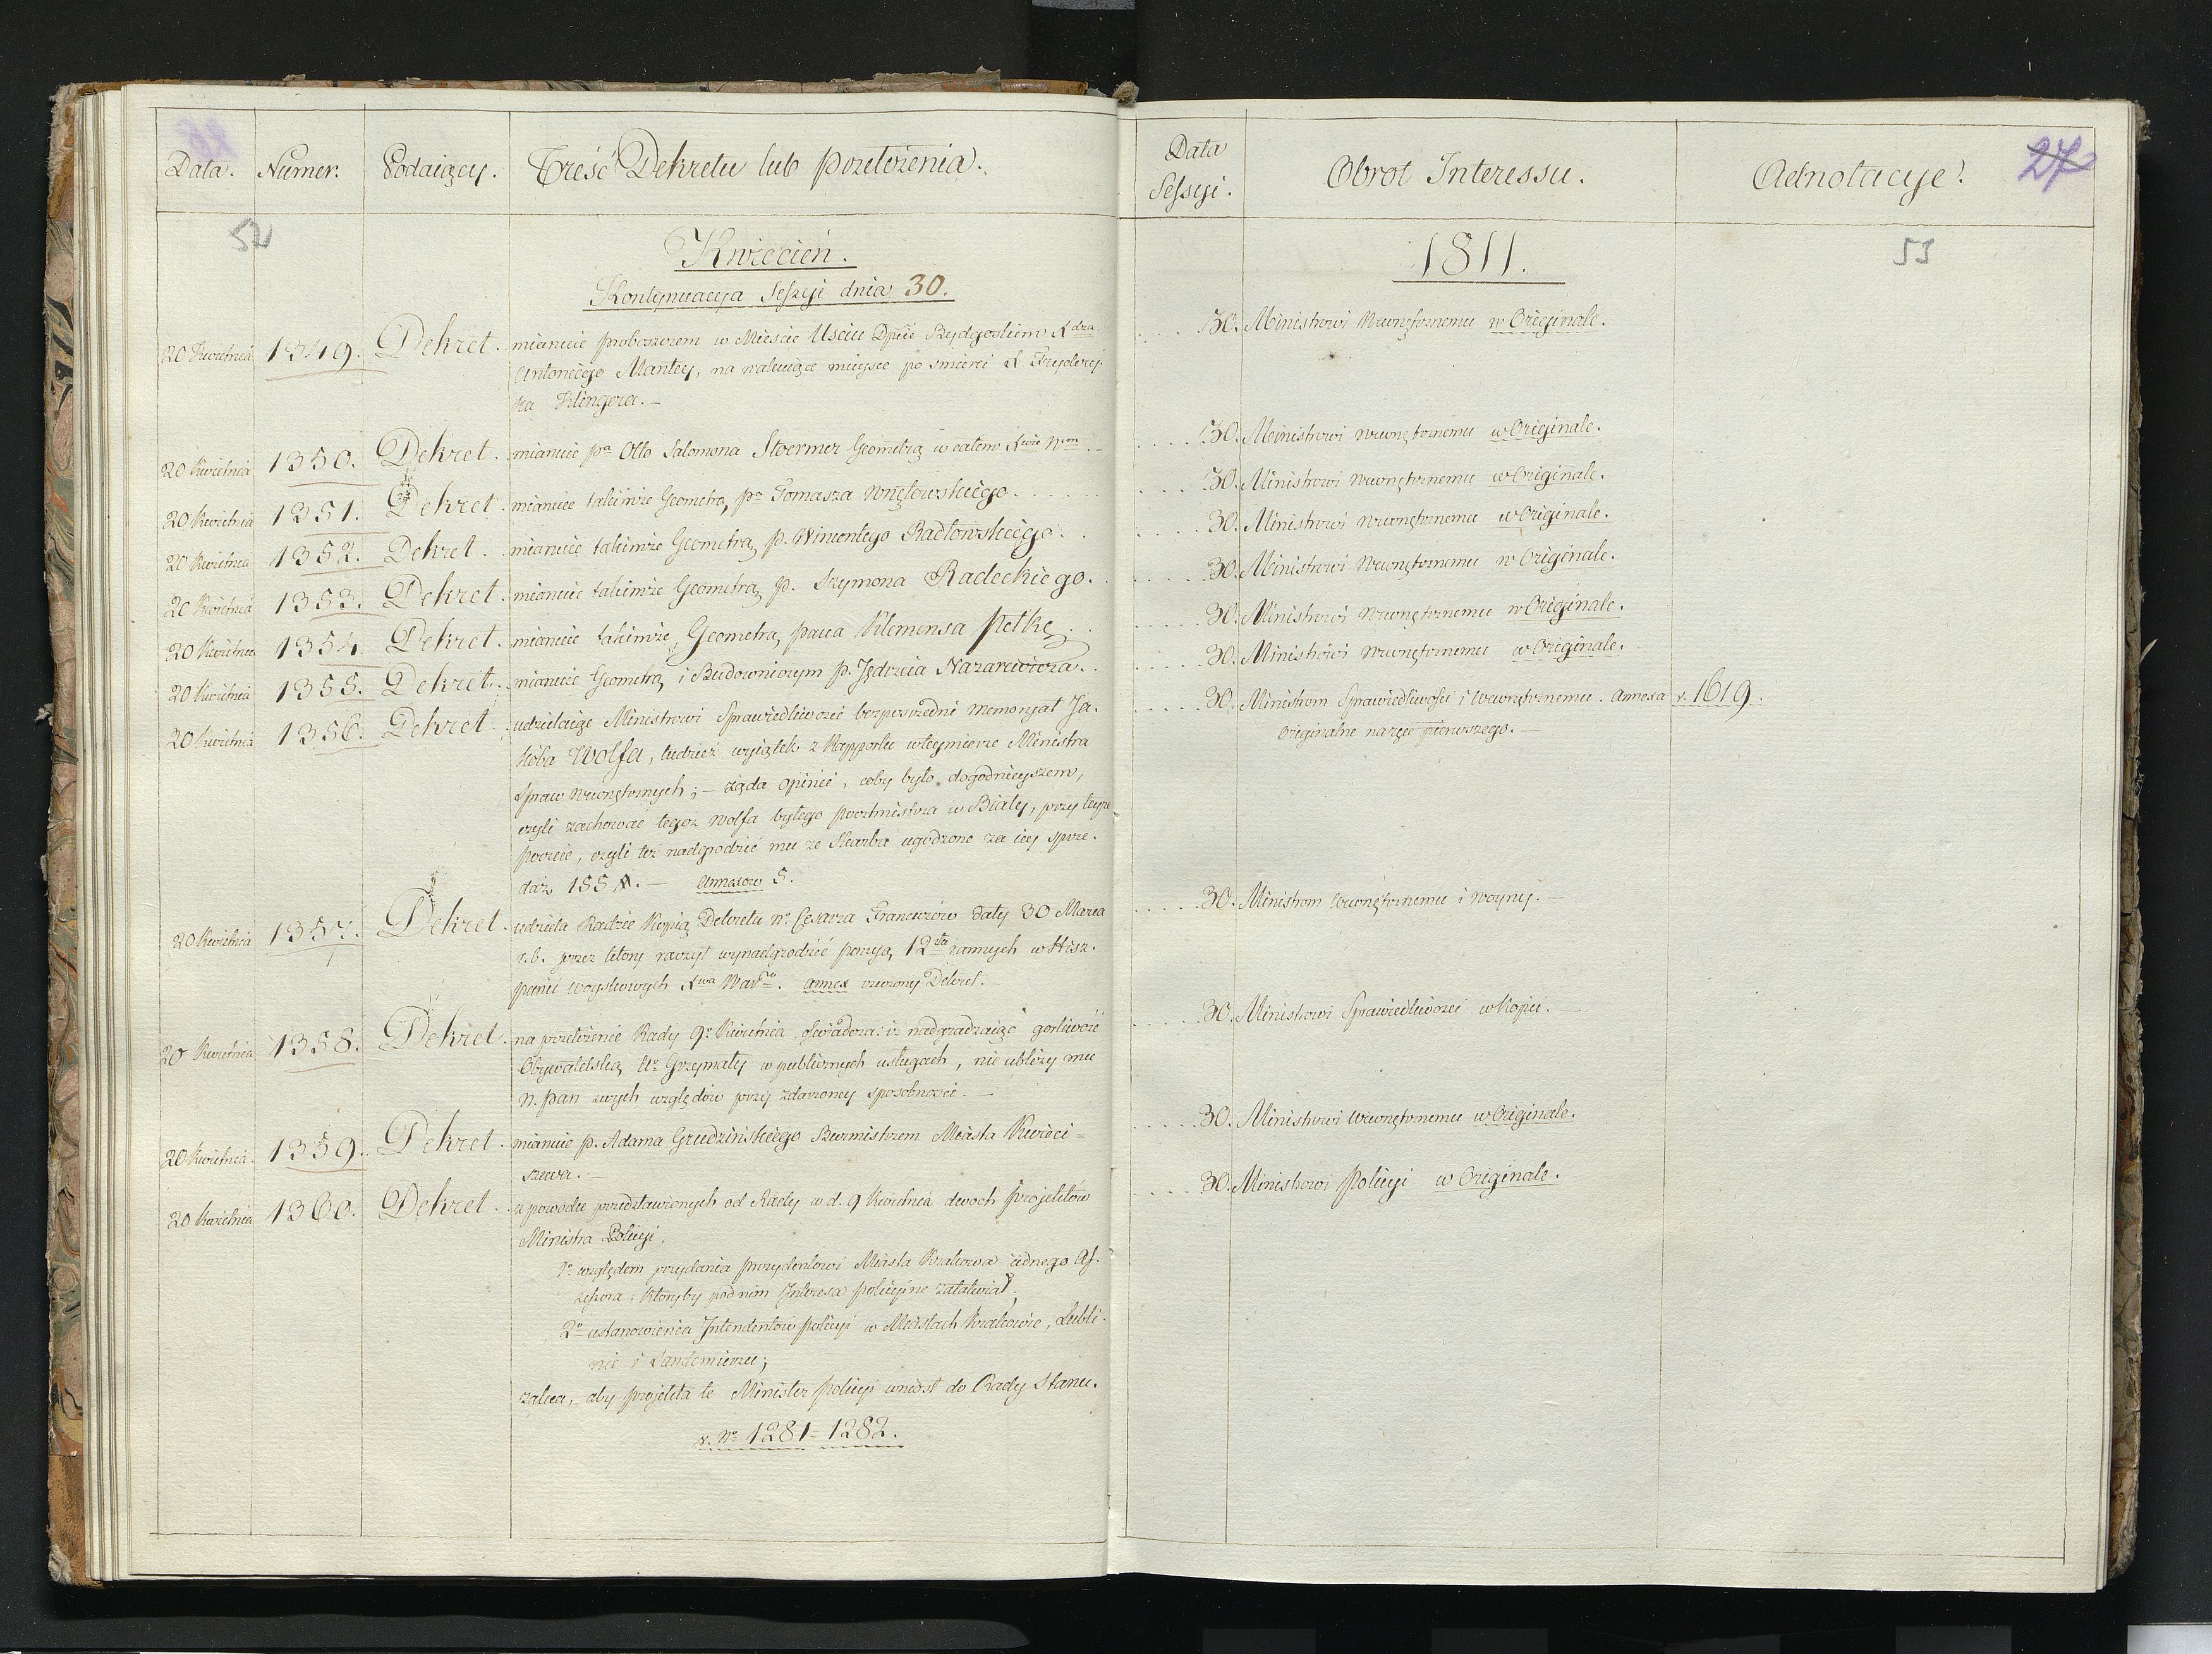 Data. Numer. Podaiący. Treść Dekretu lub przełożenia.
52
Kwiecień.
Kontynuacya Sessyi dnia 30.
20 Kwietnia 1349. Dekret. mianuie proboszczem w Mieście Usciu Dptcie Bydgoskiem Xdza
Antoniego Mantey, na wakuiące mieysce po śmierci X. Frydery-
ka Klingera.—
20 Kwietnia 1350. Dekret. mianuie pa Otto Salomona Stoermer Geometrą w całem Xwie Wm
20 Kwietnia 1351. Dekret. mianuie takimże Geometrą pa Tomasza Wnętowskiego.
20 Kwietnia 1352. Dekret. mianuie takimże Geometrą p. Wincentego Radłowskiego.
20 Kwietnia 1353. Dekret. mianuie takimże Geometrą p. Szymona Radeckiego.
20 Kwietnia 1354. Dekret. mianuie takimże Geometrą pana Klemensa Petkę
20 Kwietnia 1355. Dekret. mianuie Geometrą i Budowniczym p. Nazarewicza.
20 Kwietnia 1356. Dekret. udzielaiąc Ministrowi Sprawiedliwości bezpośredni memoryał Ja-
kóba Wolfa, tudzież wyiątek z Rapportu w teymierze Ministra
Spraw Wewnętrznych;— żąda opinii, coby było dogodnieyszem,
czyli zachować tegoż Wolfa byłego Pocztmistrza w Biały, przy teyże
poczcie, czyli też nadgrodzić mu ze Skarbu ugodzone za iéy sprze-
daż 155 #.— Annexow 5.
20 Kwietnia 1357. Dekret. udziela Radzie Kopią Dekretu No Cesarza Francuzów daty 30 Marca
r. b. przez który raczył wynadgrodzić pensyą 12stu rannych w Hisz-
panii woyskowych Xwa Warso. annex rzeczony Dekret.
20 Kwietnia 1358. Dekret. na przełożenie Rady 9o Kwietnia oświadcza: iż nadgradzaiąc gorliwość
Obywatelską Uo Grzymały w publicznych usługach, nie ubliży mu
N. Pan swych względów przy zdarzoney sposobności.—
20 Kwietnia. 1359. Dekret. mianuie p. Adama Grudzińskiego Burmistrzem Miasta Kwieci=
szewa.—
20 Kwietnia 1360. Dekret. z powodu przedstawionych od Rady w d. 9 Kwietnia dwoch projektów
Ministra Policyi,
1o względem przydania prezydentowi Miasta Krakowa iednego As-
sessora: któryby pod nim Interesa policyine załatwiał;
2o ustanowienia Intendentow policyi w Miastach Krakowie, Lubli-
nie i Sandomierzu;
zaleca, aby projekta te Minister policyi wniósł do Rady Stanu.
v. No 1281=1282.
Data Sessyi. Obrot Interessu. Adnotacyje. 27
1811. 53
30. Ministrowi Wewnętrznemu w Originale.
30. Ministrowi Wewnętrznemu w Originale.
30. Ministrowi Wewnętrznemu w Originale.
30. Ministrowi Wewnętrznemu w Originale.
30. Ministrowi Wewnętrznemu w Originale.
30. Ministrowi Wewnętrznemu w Originale.
30. Ministrowi Wewnętrznemu w Originale.
30. Ministrom Sprawiedliwości i Wewnętrznemu. Annexa v. 1619.
originalne na ręce pierwszego.—
30. Ministrom Wewnętrznemu i Woyny.—
30. Ministrowi Sprawiedliwości w Kopii.—
30. Ministrowi Wewnętrznemu w Originale.
30. Ministrowi Policyi w Originale.